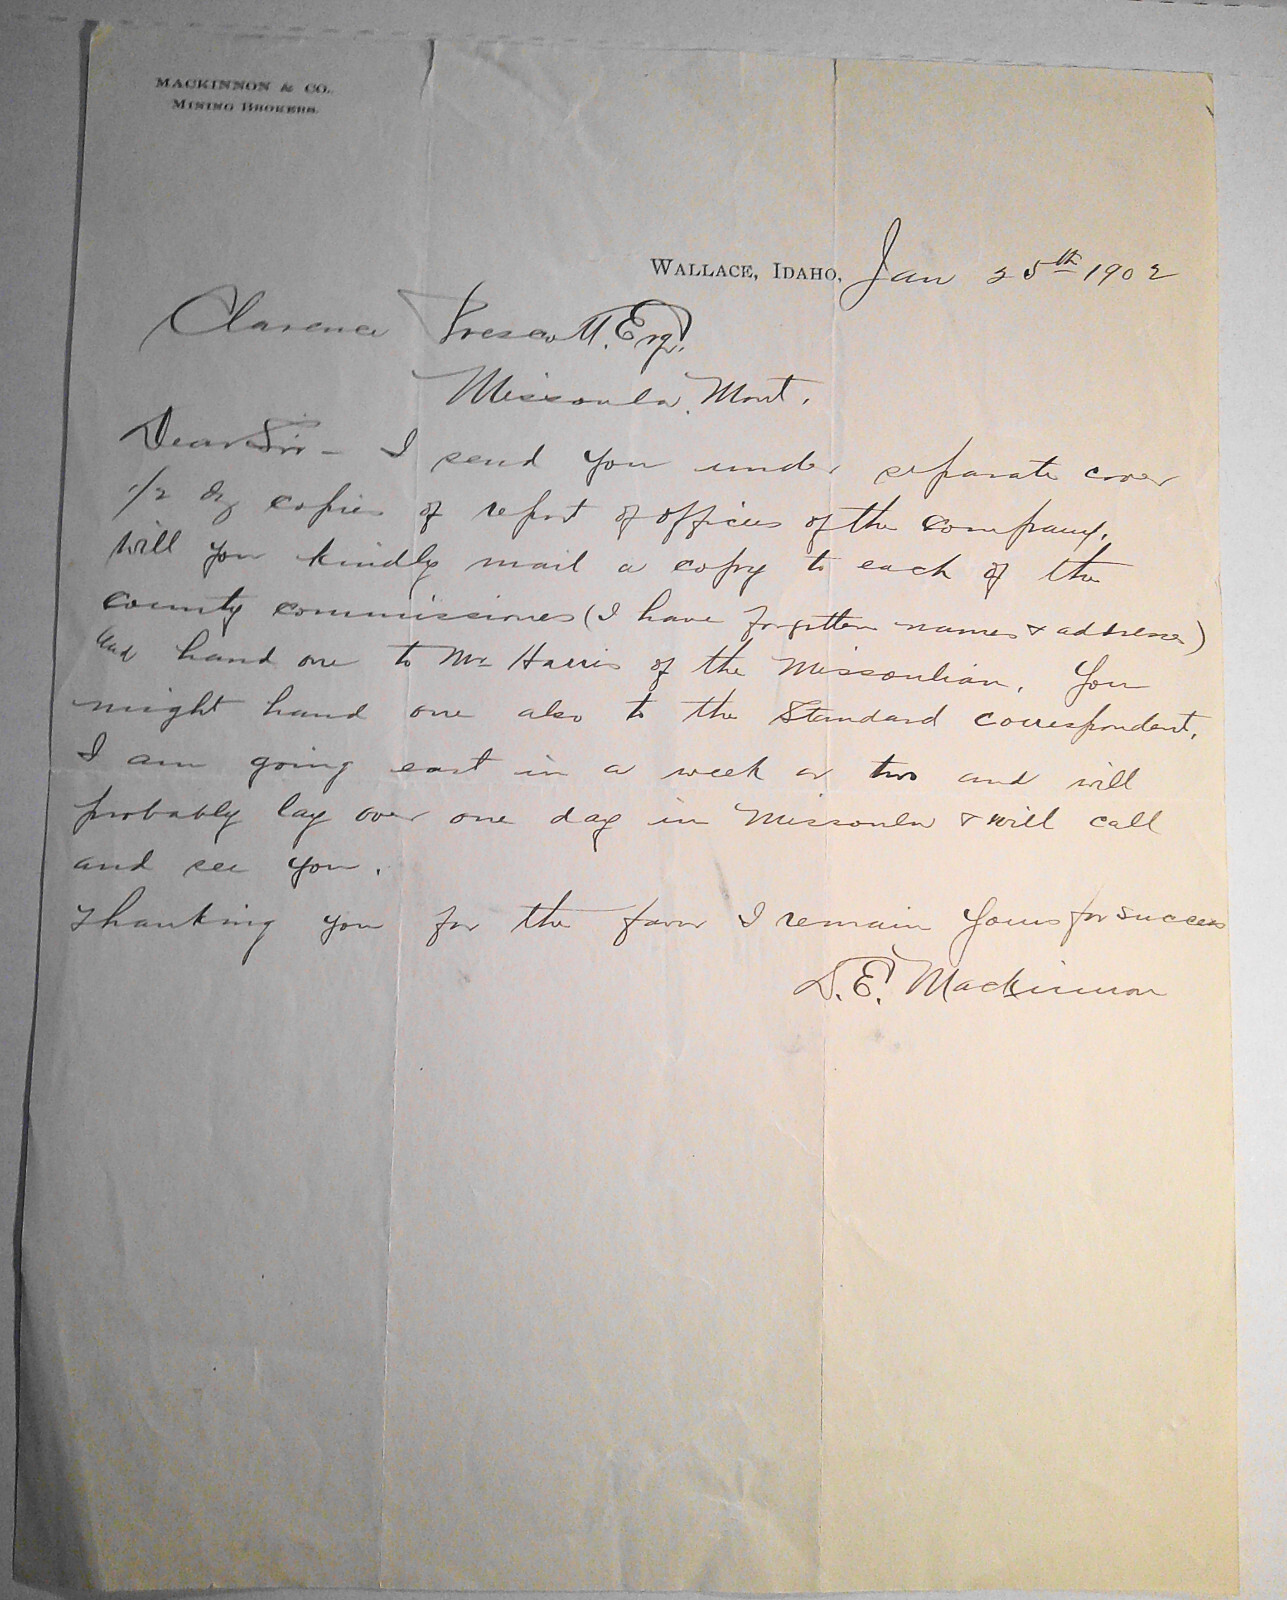 MACKINNON & CO.
MINING BROKERS.
WALLACE, IDAHO, Jan 25th 1902
Clarence Prescott. Esq.
Missoula, Mont.
Dear Sir - I send you under separate cover
1/2 dz copies of report of offices of the company.
Will you kindly mail a copy to each of the
county commissiones (I have forgotten names & address)
and hand one to Mr Harris of the Missoulian. You
might hand one also to the Standard correspondent.
I am going east in a week or two and will
probably lay over one day in Missoula & will call
and see you.
Thanking you for the favor I remain Yours for success
D. E. Mackinnon